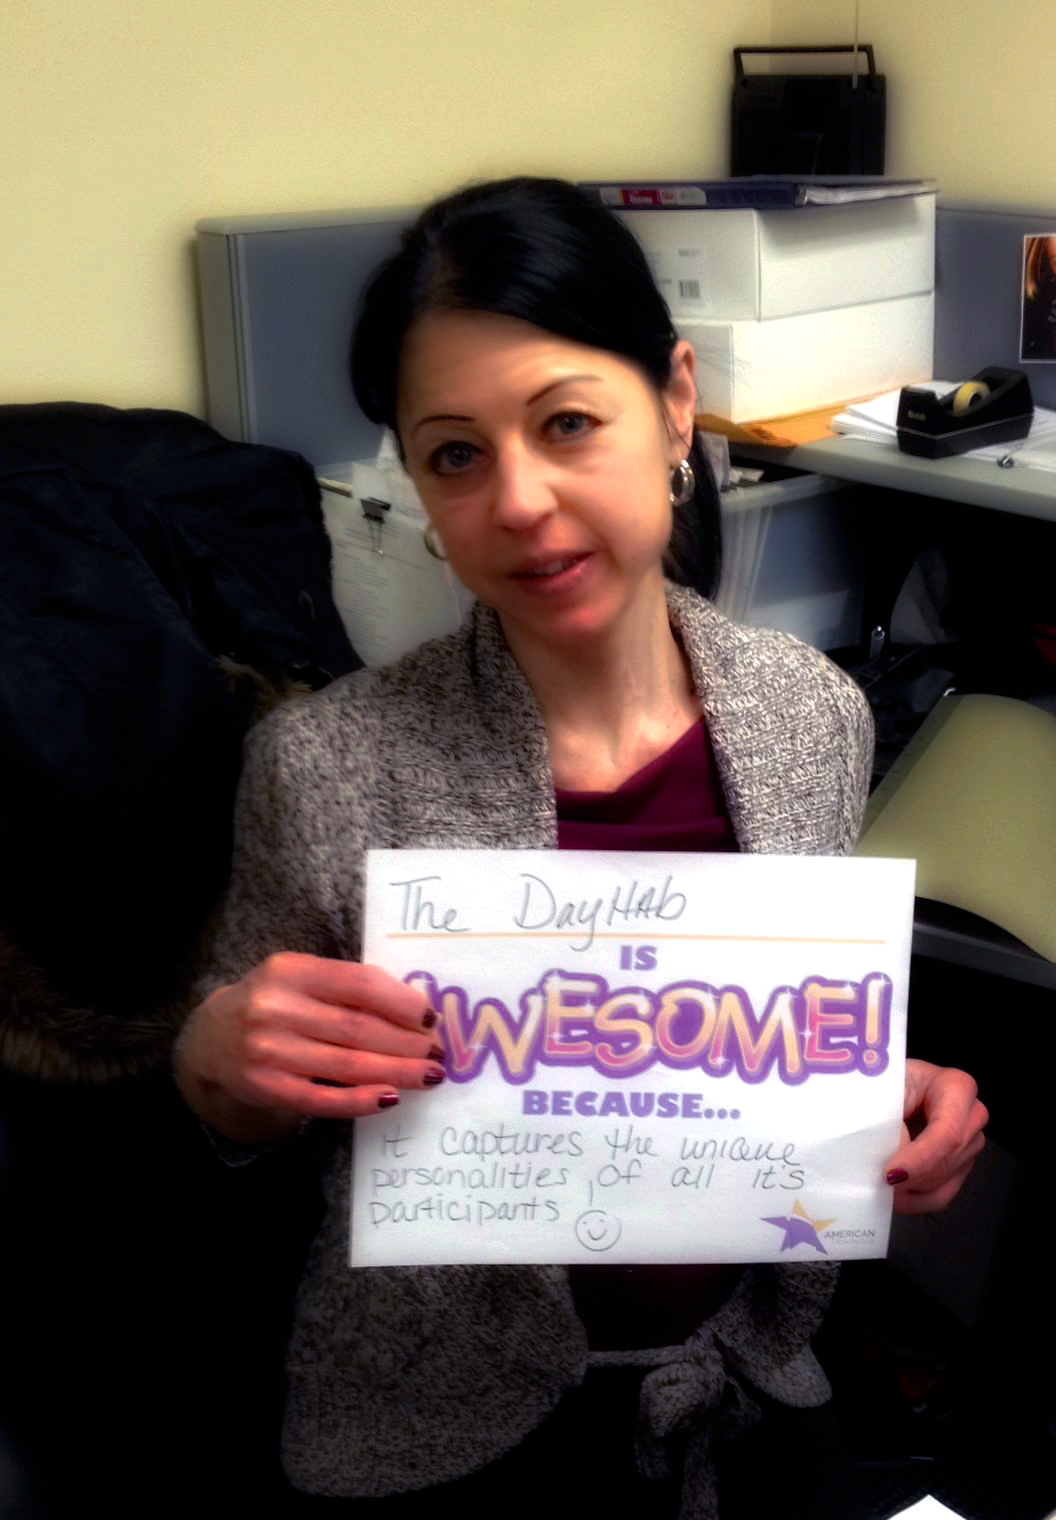 The DayHAb
IS
AWESOME!
BECAUSE...
it captures the unique
personalities of all it's
participants
AMERICAN
TRAINING